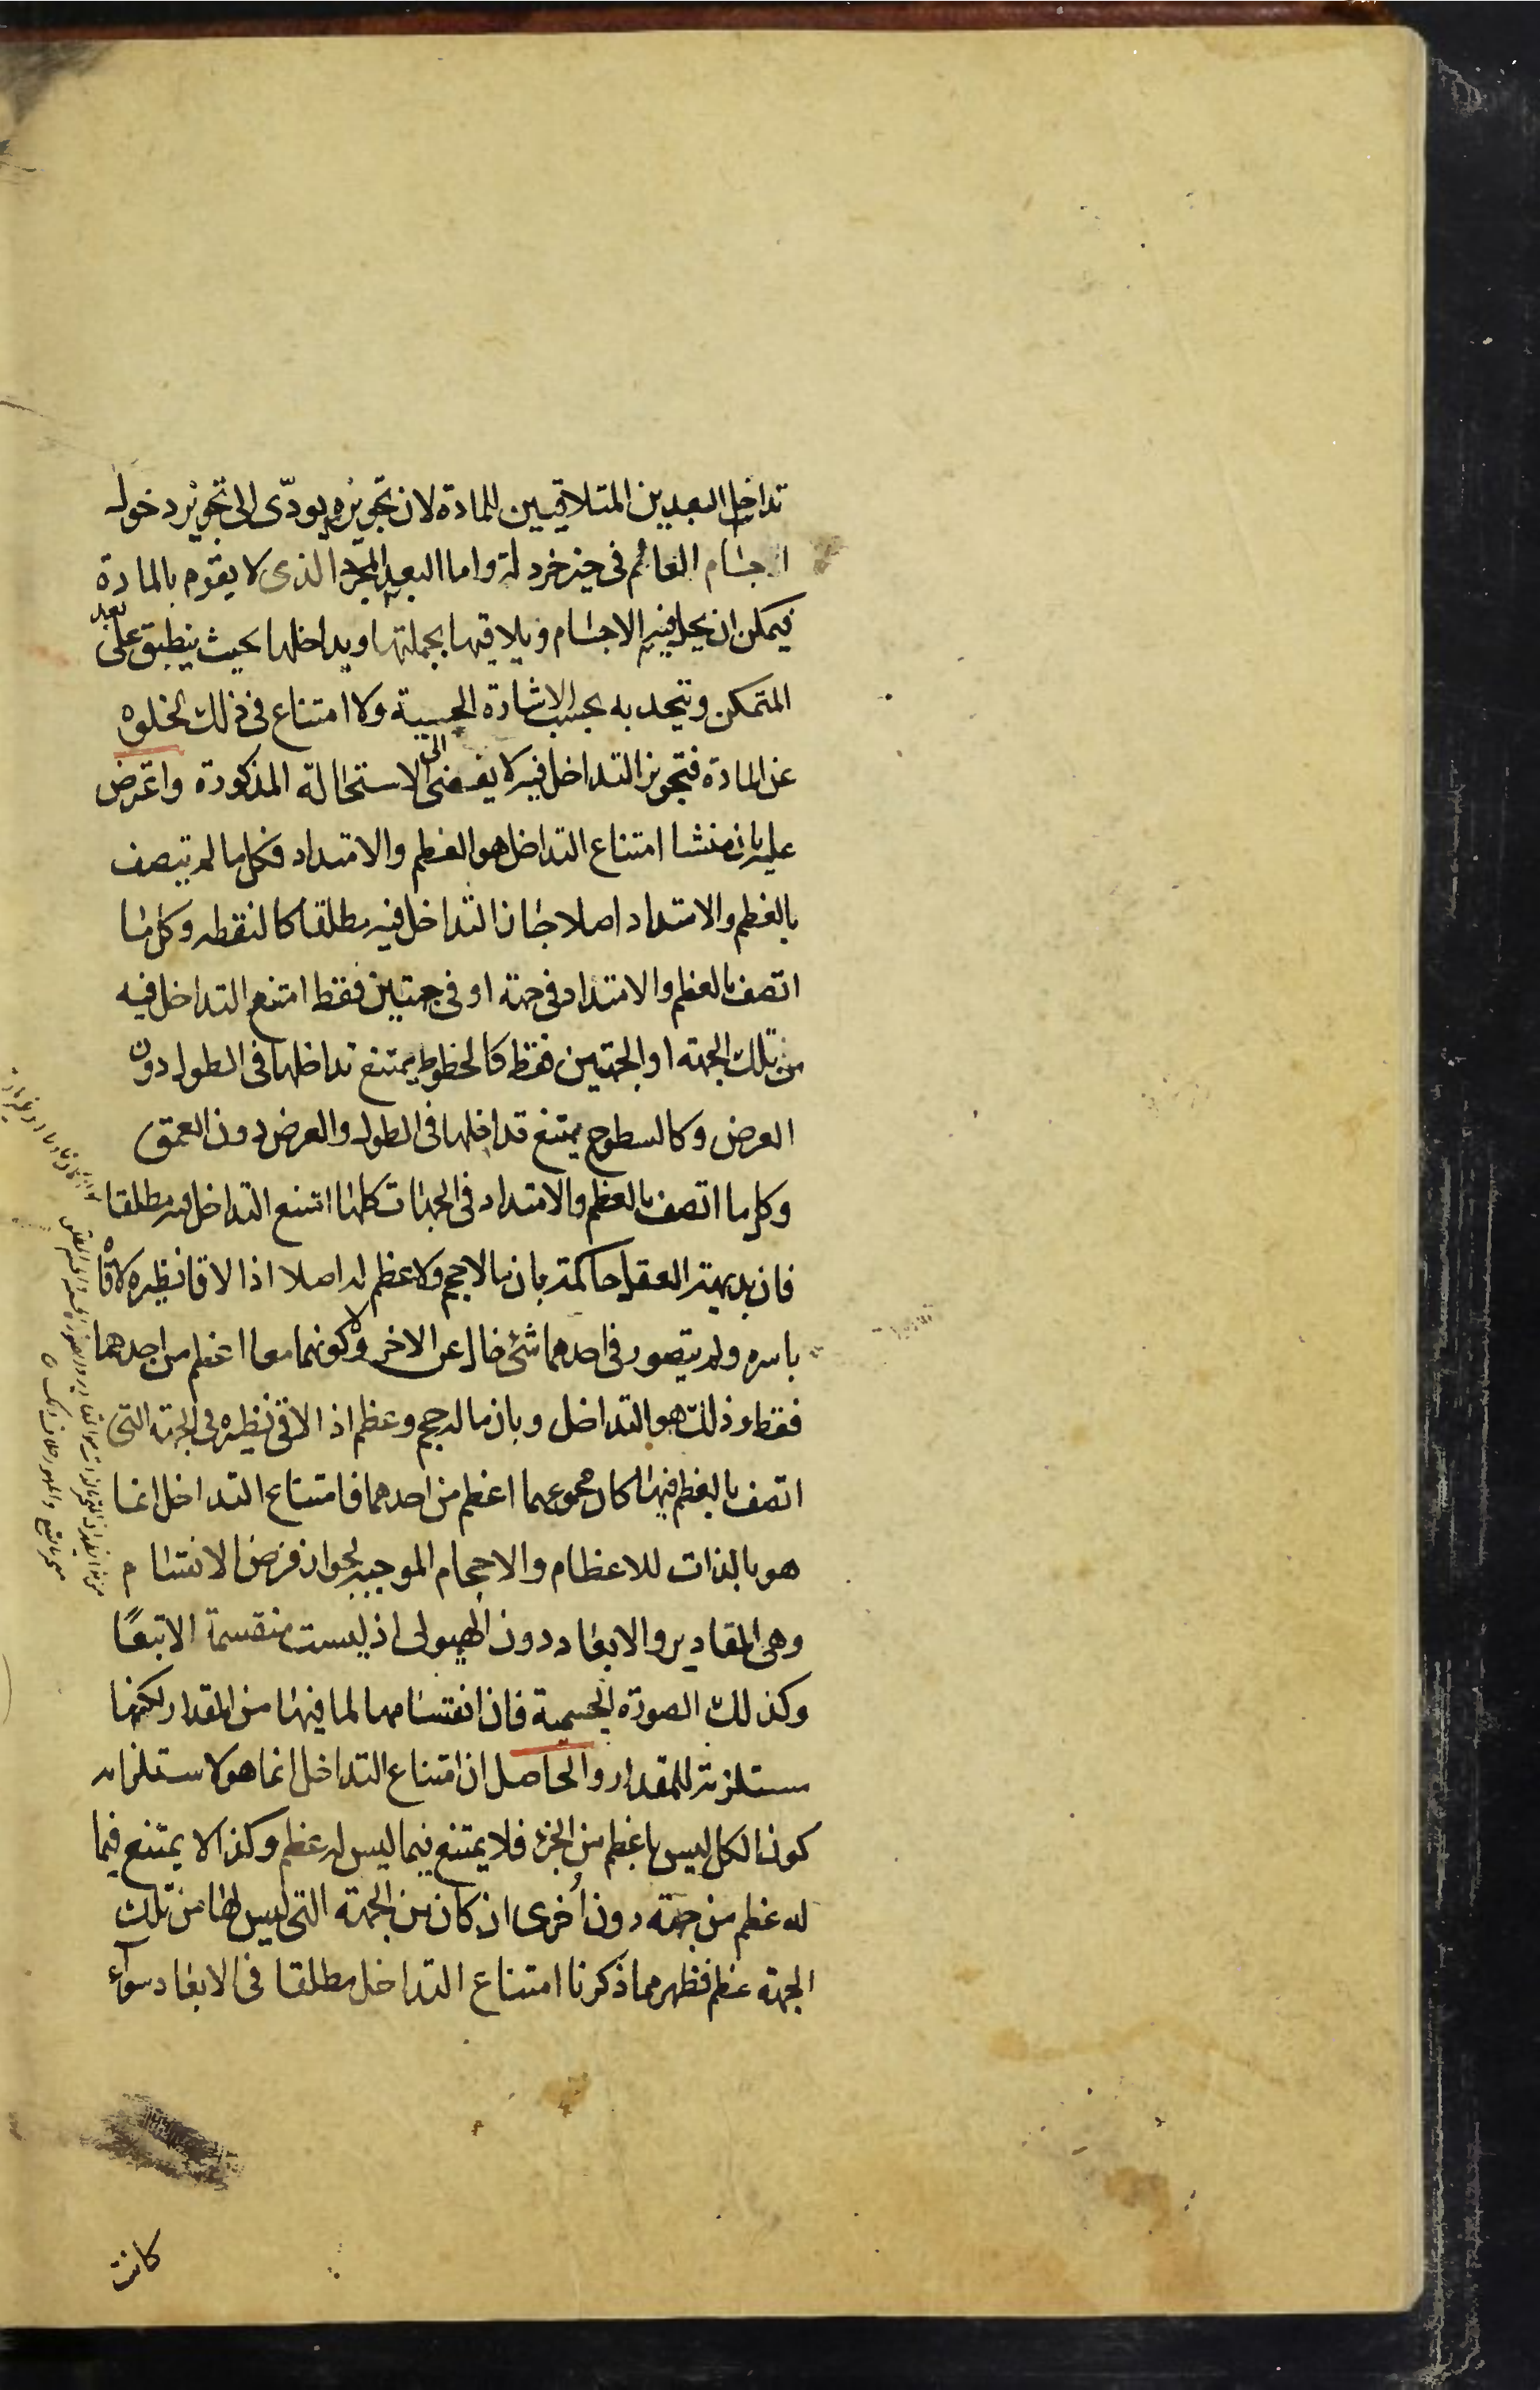 تداخل البعدين المتلاقيين للمادة لان تجويزه يودّى الى تجويز دخول
اجسام العالم فى حيز خردلة واما البعد المجرد الذى لا يقوم بالمادة
فيمكن ان يحل فيه الاجسام ويلاقيها بجملتها ويداخلها بحيث ينطبق على بعد
المتمكن ويتحد به بحسب الاشارة الحسية ولا امتناع فى ذلك لخلوه
عن المادة فتجويز التداخل فيه لا يفضى الى الاستحالة المذكورة واعترض
عليه بان منشا امتناع التداخل هو العظم والامتداد فكل ما لم يتصف
بالعظم والامتداد اصلا جاز التداخل فيه مطلقا كالنقطه وكل ما
اتصف بالعظم والامتداد فى جهة او فى جهتين فقط امتنع التداخل فيه
من تلك الجهة او الجهتين فقط كالخطوط يمتنع تداخلها فى الطول دون
العرض وكالسطوح يمتنع تداخلها فى الطول والعرض دون العمق
وكل ما اتصف بالعظم والامتداد فى الجهات كلها امتنع التداخل فيه مطلقا
فان بديهة العقل حاكمة بان ما لا حجم ولا عظم له اصلا اذا لاقا نظيره لاقاه
باسره ولم يتصور فى احدهما شئ خال عن الاخر ولا كونهما معا اعظم من احدهما
فقط وذلك هو التداخل وبان ما له حجم وعظم اذا لاقى نظيره فى الجهة التى
اتصف بالعظم فيها كان مجموعهما اعظم من احدهما فامتناع التداخل انما
هو بالذات للاعظام والاحجام الموجبه لجواز فرض الانقسام
وهى المقادير والابعاد دون الهيولى اذ ليست منقسمة الا تبعًا
وكذلك الصورة الجسمية فان انقسامها لما فيها من المقدار لكنها
مستلزمة للمقدار والحاصل ان امتناع التداخل انما هو لاستلزامه
كون الكل ليس باعظم من الجزء فلا يمتنع فيما ليس له عظم وكذا لا يمتنع فيما
له عظم من جهة دون اُخرى ان كان من الجهة التى ليس لها من تلك
الجهة عظم فظهر مما ذكرنا امتناع التداخل مطلقا فى الابعاد سواء
كانت